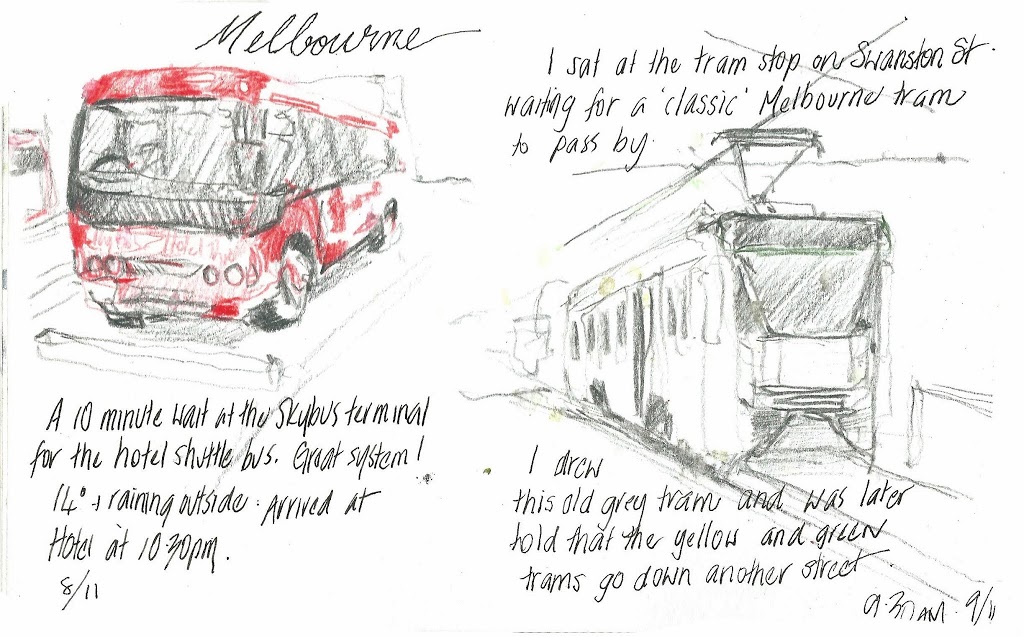 Melbourne
A 10 minute wait at the Skybus terminal
for the hotel shuttle bus. Great system!
14° + raining outside. Arrived at
Hotel at 10.30pm.
8/11
I sat at the tram stop on Swanston St.
waiting for a 'classic' Melbourne tram
to pass by.
I drew
this old grey tram and was later
told that the yellow and green
trams go down another street.
9.30AM. 9/11